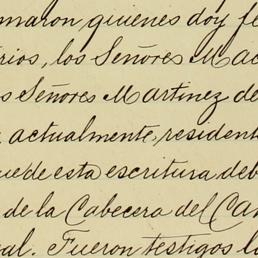 maron quienes doy fe
rios, los Señores Mac
s Señores Martinez de
actualmente, resident
ue de esta escritura deb
de la Cabecera del Can
al. Fueron testigos lo